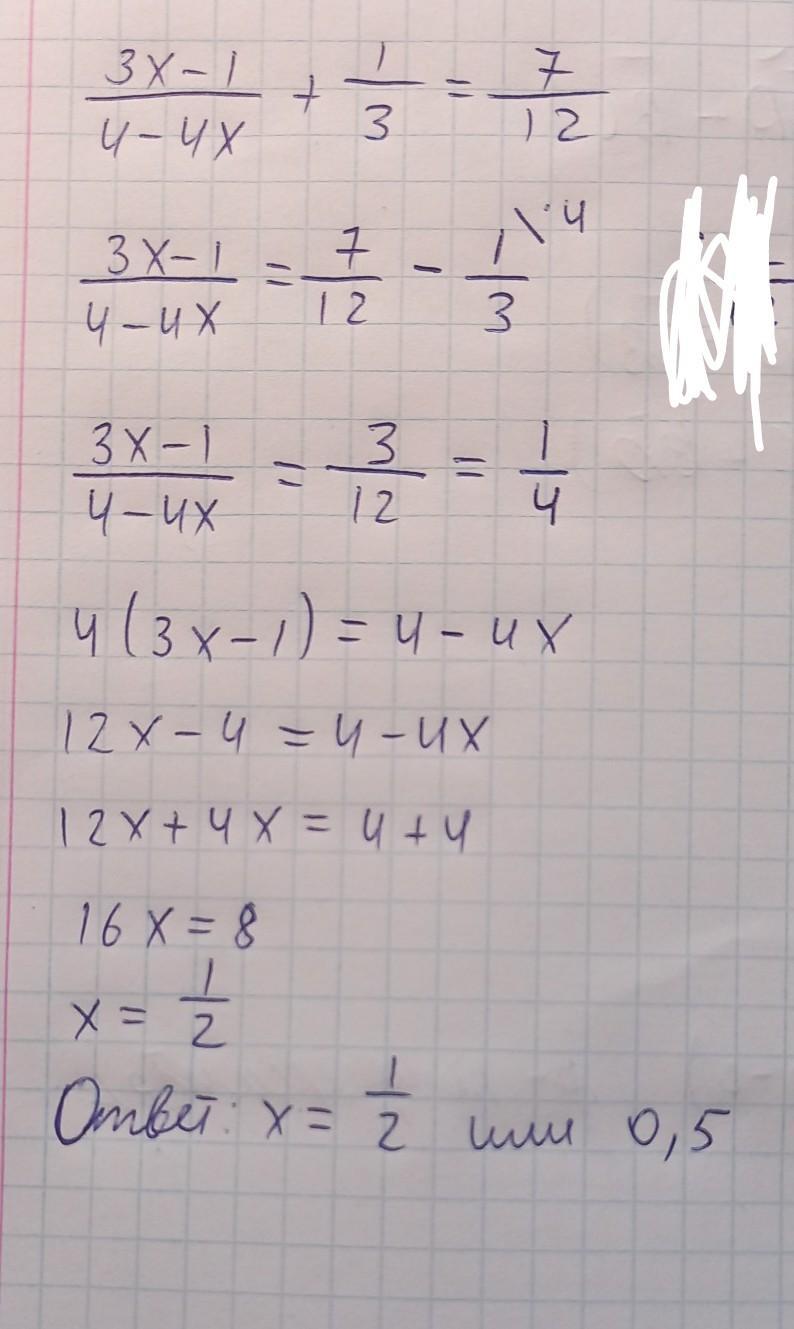 (3x-1)/(4-4x) + 1/3 = 7/12
(3x-1)/(4-4x) = 7/12 - 1\·4/3
(3x-1)/(4-4x) = 3/12 = 1/4
4(3x-1) = 4-4x
12x-4 = 4-4x
12x+4x = 4+4
16x = 8
x = 1/2
Ответ: x = 1/2 или 0,5